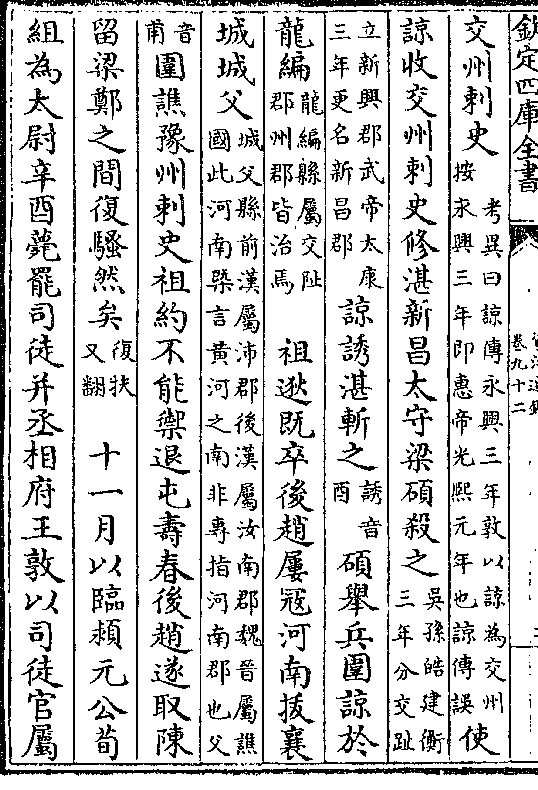 欽定四庫全書
卷九十二
交州刺史考異曰諒傳永興三年敦以諒為交州按永興三年即惠帝光熙元年也諒傳誤使
諒收交州刺史修湛新昌太守梁碩殺之吳孫皓建衡三年分交趾
立新興郡武帝太康三年更名新昌郡諒誘湛斬之誘音酉碩舉兵圍諒於
龍編龍編縣屬交趾郡州郡皆治焉祖逖既卒後趙屢寇河南拔襄
城城父城父縣前漢屬沛郡後漢屬汝南郡魏晉屬譙國此河南槩言黄河之南非專指河南郡也父
音甫圍譙豫州刺史祖約不能禦退屯壽春後趙遂取陳
留梁鄭之間復騷然矣復扶又翻十一月以臨頴元公荀
組為太尉辛酉薨罷司徒并丞相府王敦以司徒官屬